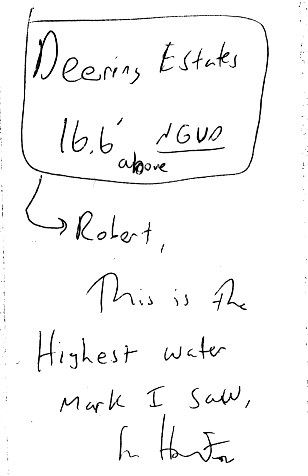 Deering Estates
16.6' above NGVD
Robert,
This is the
Highest water
mark I saw,
in